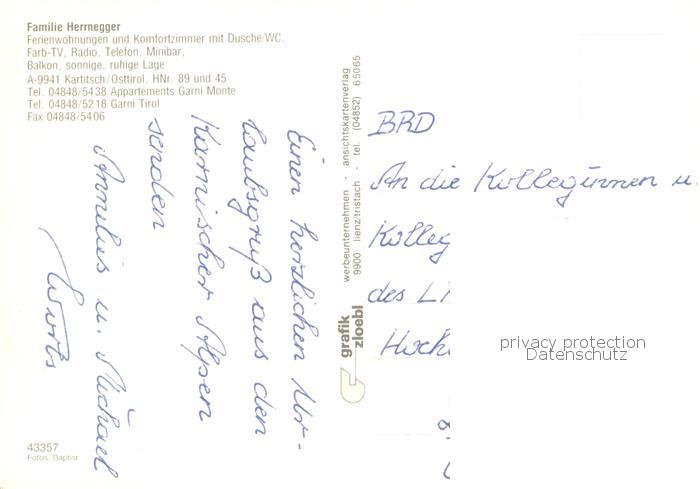 Familie Herrnegger
Ferienwohnungen und Komfortzimmer mit Dusche/WC,
Farb-TV, Radio, Telefon, Minibar,
Balkon, sonnige, ruhige Lage
A-9941 Kartitsch/Osttirol, HNr. 89 und 45
Tel. 04848/5438 Appartements Garni Monte
Tel. 04848/5218 Garni Tirol
Fax 04848/5406
Einen herzlichen Ur-
laubsgruß aus den
Karnischer Alpen
senden
Annelies u. Michael
43357
Fotos: Baptist
werbeunternehmen - ansichtskartenverlag
9900 lienz/tristach - tel. (04852) 65065
grafik
zloebl
BRD
An die Kolleginnen u.
Kolleg
des
Hoch
privacy protection
Datenschutz